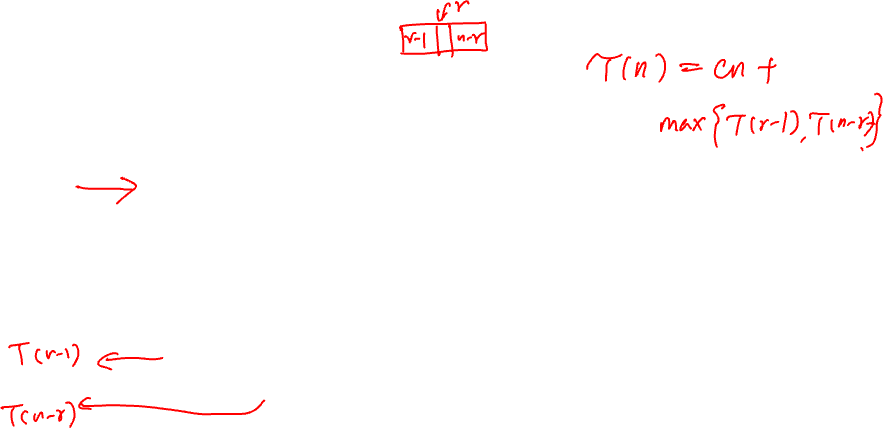 r
r-1 n-r
T(n) = cn +
max{T(r-1), T(n-r)}
T(r-1)
T(n-r)